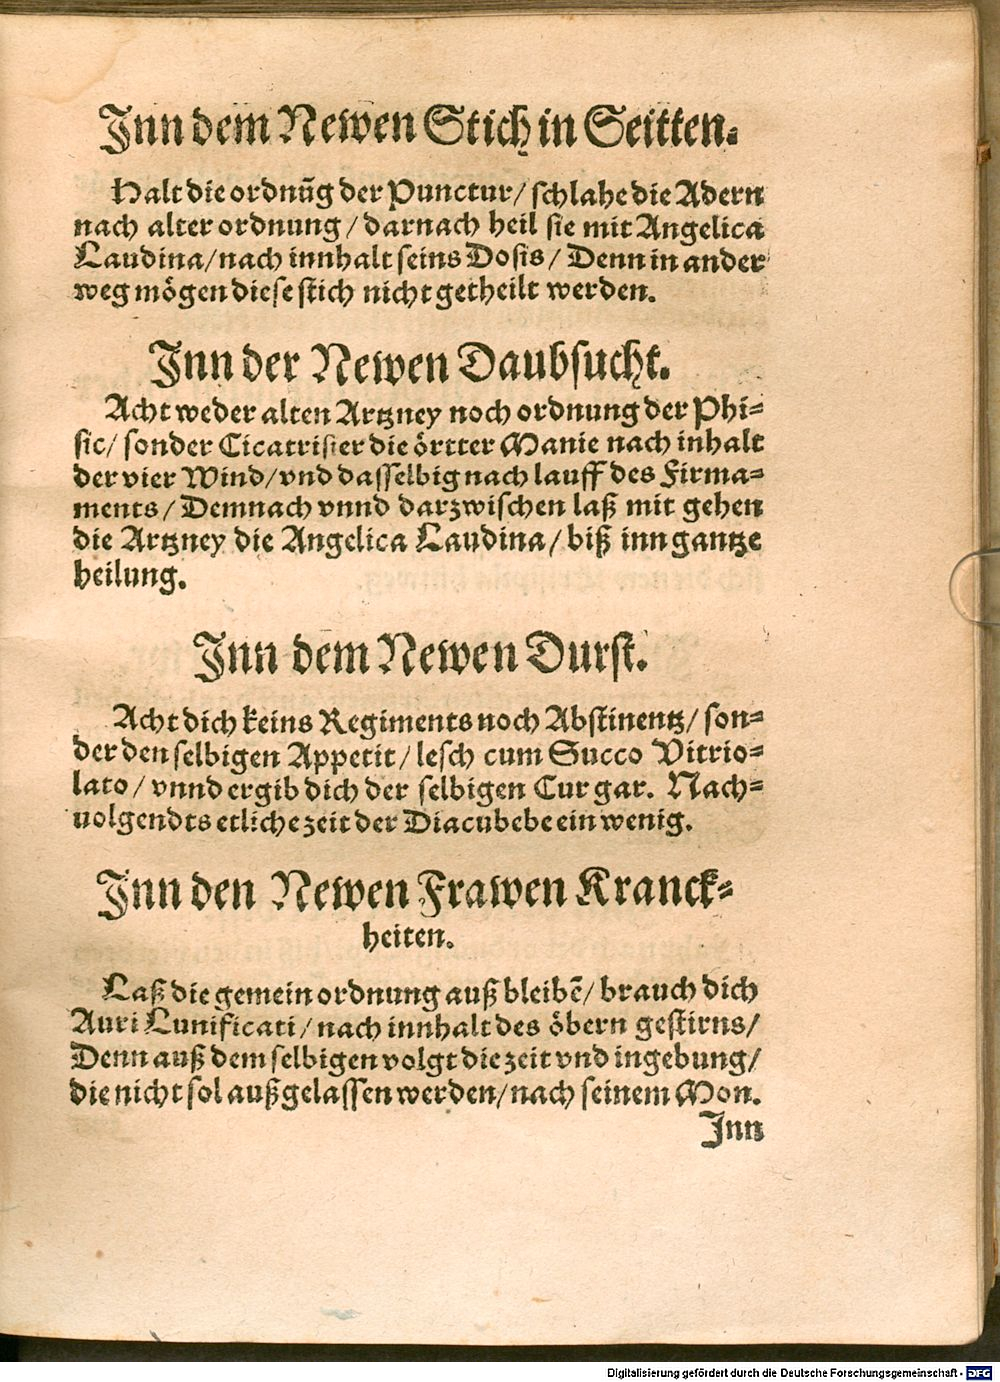 Inn dem Newen Stich in Seitten.
Halt die ordnūg der Punctur/ schlahe die Adern
nach alter ordnung/ darnach heil sie mit Angelica
Laudina/ nach innhalt seins Dosis/ Denn in ander
weg mögen diese stich nicht getheilt werden.
Inn der Newen Daubsucht.
Acht weder alten Artzney noch ordnung der Phi-
sic/ sonder Cicatrisier die örtter Manie nach inhalt
der vier Wind/ vnd dasselbig nach lauff des Firma-
ments/ Demnach vnnd darzwischen laß mit gehen
die Artzney die Angelica Laudina/ biß inn gantze
heilung.
Inn dem Newen Durst.
Acht dich keins Regiments noch Abstinentz/ son-
der den selbigen Appetit/ lesch cum Succo Vitrio-
lato/ vnnd ergib dich der selbigen Cur gar. Nach-
uolgendts etliche zeit der Diacubebe ein wenig.
Inn den Newen Frawen Kranck-
heiten.
Laß die gemein ordnung auß bleibē/ brauch dich
Auri Lunificati/ nach innhalt des öbern gestirns/
Denn auß dem selbigen volgt die zeit vnd ingebung/
die nicht sol außgelassen werden/ nach seinem Mon.
Inn
Digitalisierung gefördert durch die Deutsche Forschungsgemeinschaft - DFG